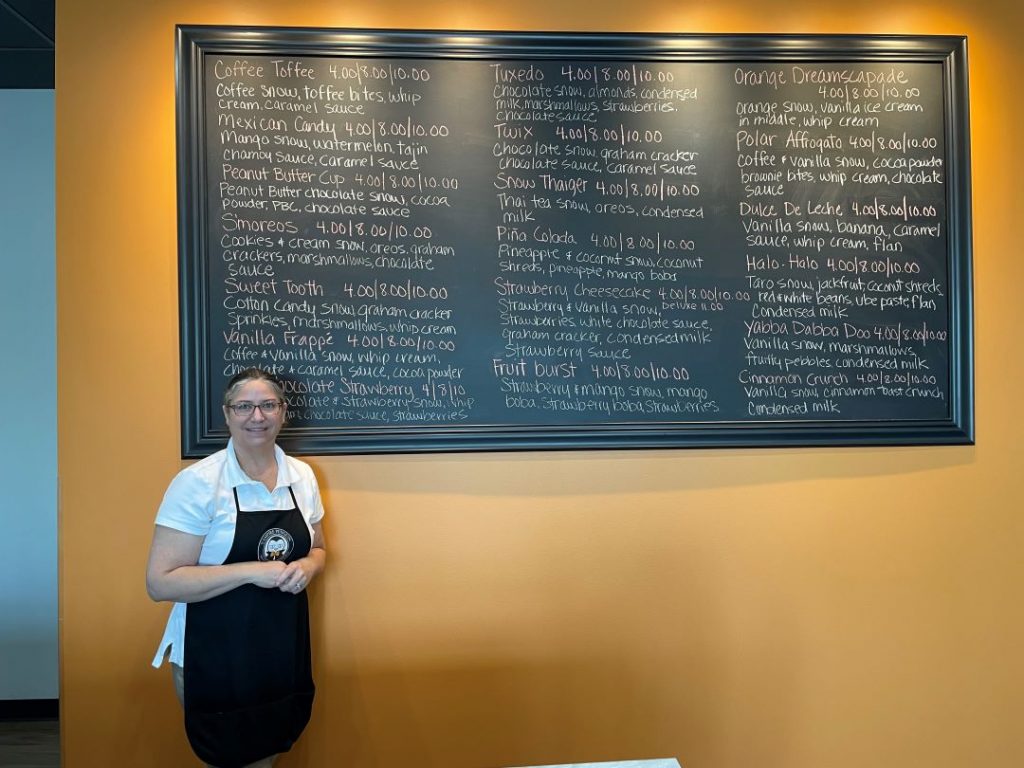 Coffee Toffee 4.00/8.00/10.00
Coffee snow, toffee bites, whip
cream, caramel sauce
Mexican Candy 4.00/8.00/10.00
Mango snow, watermelon, tajin
chamoy sauce, caramel sauce
Peanut Butter Cup 4.00/8.00/10.00
Peanut Butter chocolate snow, cocoa
powder, PBC, chocolate sauce
S'moreos 4.00/8.00/10.00
Cookies & cream snow, oreos, graham
crackers, marshmallows, chocolate
sauce
Sweet Tooth 4.00/8.00/10.00
Cotton Candy snow, graham cracker
Sprinkles, marshmallows, whip cream
Vanilla Frappé 4.00/8.00/10.00
Coffee & Vanilla snow, whip cream,
& caramel sauce, cocoa powder
Chocolate Strawberry 4/8/10
& strawberry snow, whip
chocolate sauce, strawberries
Tuxedo 4.00/8.00/10.00
Chocolate snow, almonds, condensed
milk, marshmallows, strawberries,
chocolate sauce
Twix 4.00/8.00/10.00
Chocolate snow, graham cracker
chocolate sauce, caramel sauce
Snow Thaiger 4.00/8.00/10.00
Thai tea snow, oreos, condensed
milk
Piña Colada 4.00/8.00/10.00
Pineapple & coconut snow, coconut
shreds, pineapple, mango boba
Strawberry Cheesecake 4.00/8.00/10.00
Strawberry & vanilla snow, Deluxe 11.00
Strawberries, white chocolate sauce,
graham cracker, condensed milk
Strawberry sauce
Fruit burst 4.00/8.00/10.00
Strawberry & mango snow, mango
boba, strawberry boba, strawberries
Orange Dreamscapade
4.00/8.00/10.00
orange snow, vanilla ice cream
in middle, whip cream
Polar Affrogato 4.00/8.00/10.00
Coffee & vanilla snow, cocoa powder
brownie bites, whip cream, chocolate
sauce
Dulce De Leche 4.00/8.00/10.00
Vanilla snow, banana, caramel
sauce, whip cream, flan
Halo-Halo 4.00/8.00/10.00
Taro snow, jackfruit, coconut shreds,
red & white beans, ube paste, flan
Condensed milk
Yabba Dabba Doo 4.00/8.00/10.00
Vanilla snow, marshmallows,
fruity pebbles condensed milk
Cinnamon Crunch 4.00/8.00/10.00
Vanilla snow, cinnamon toast crunch
Condensed milk